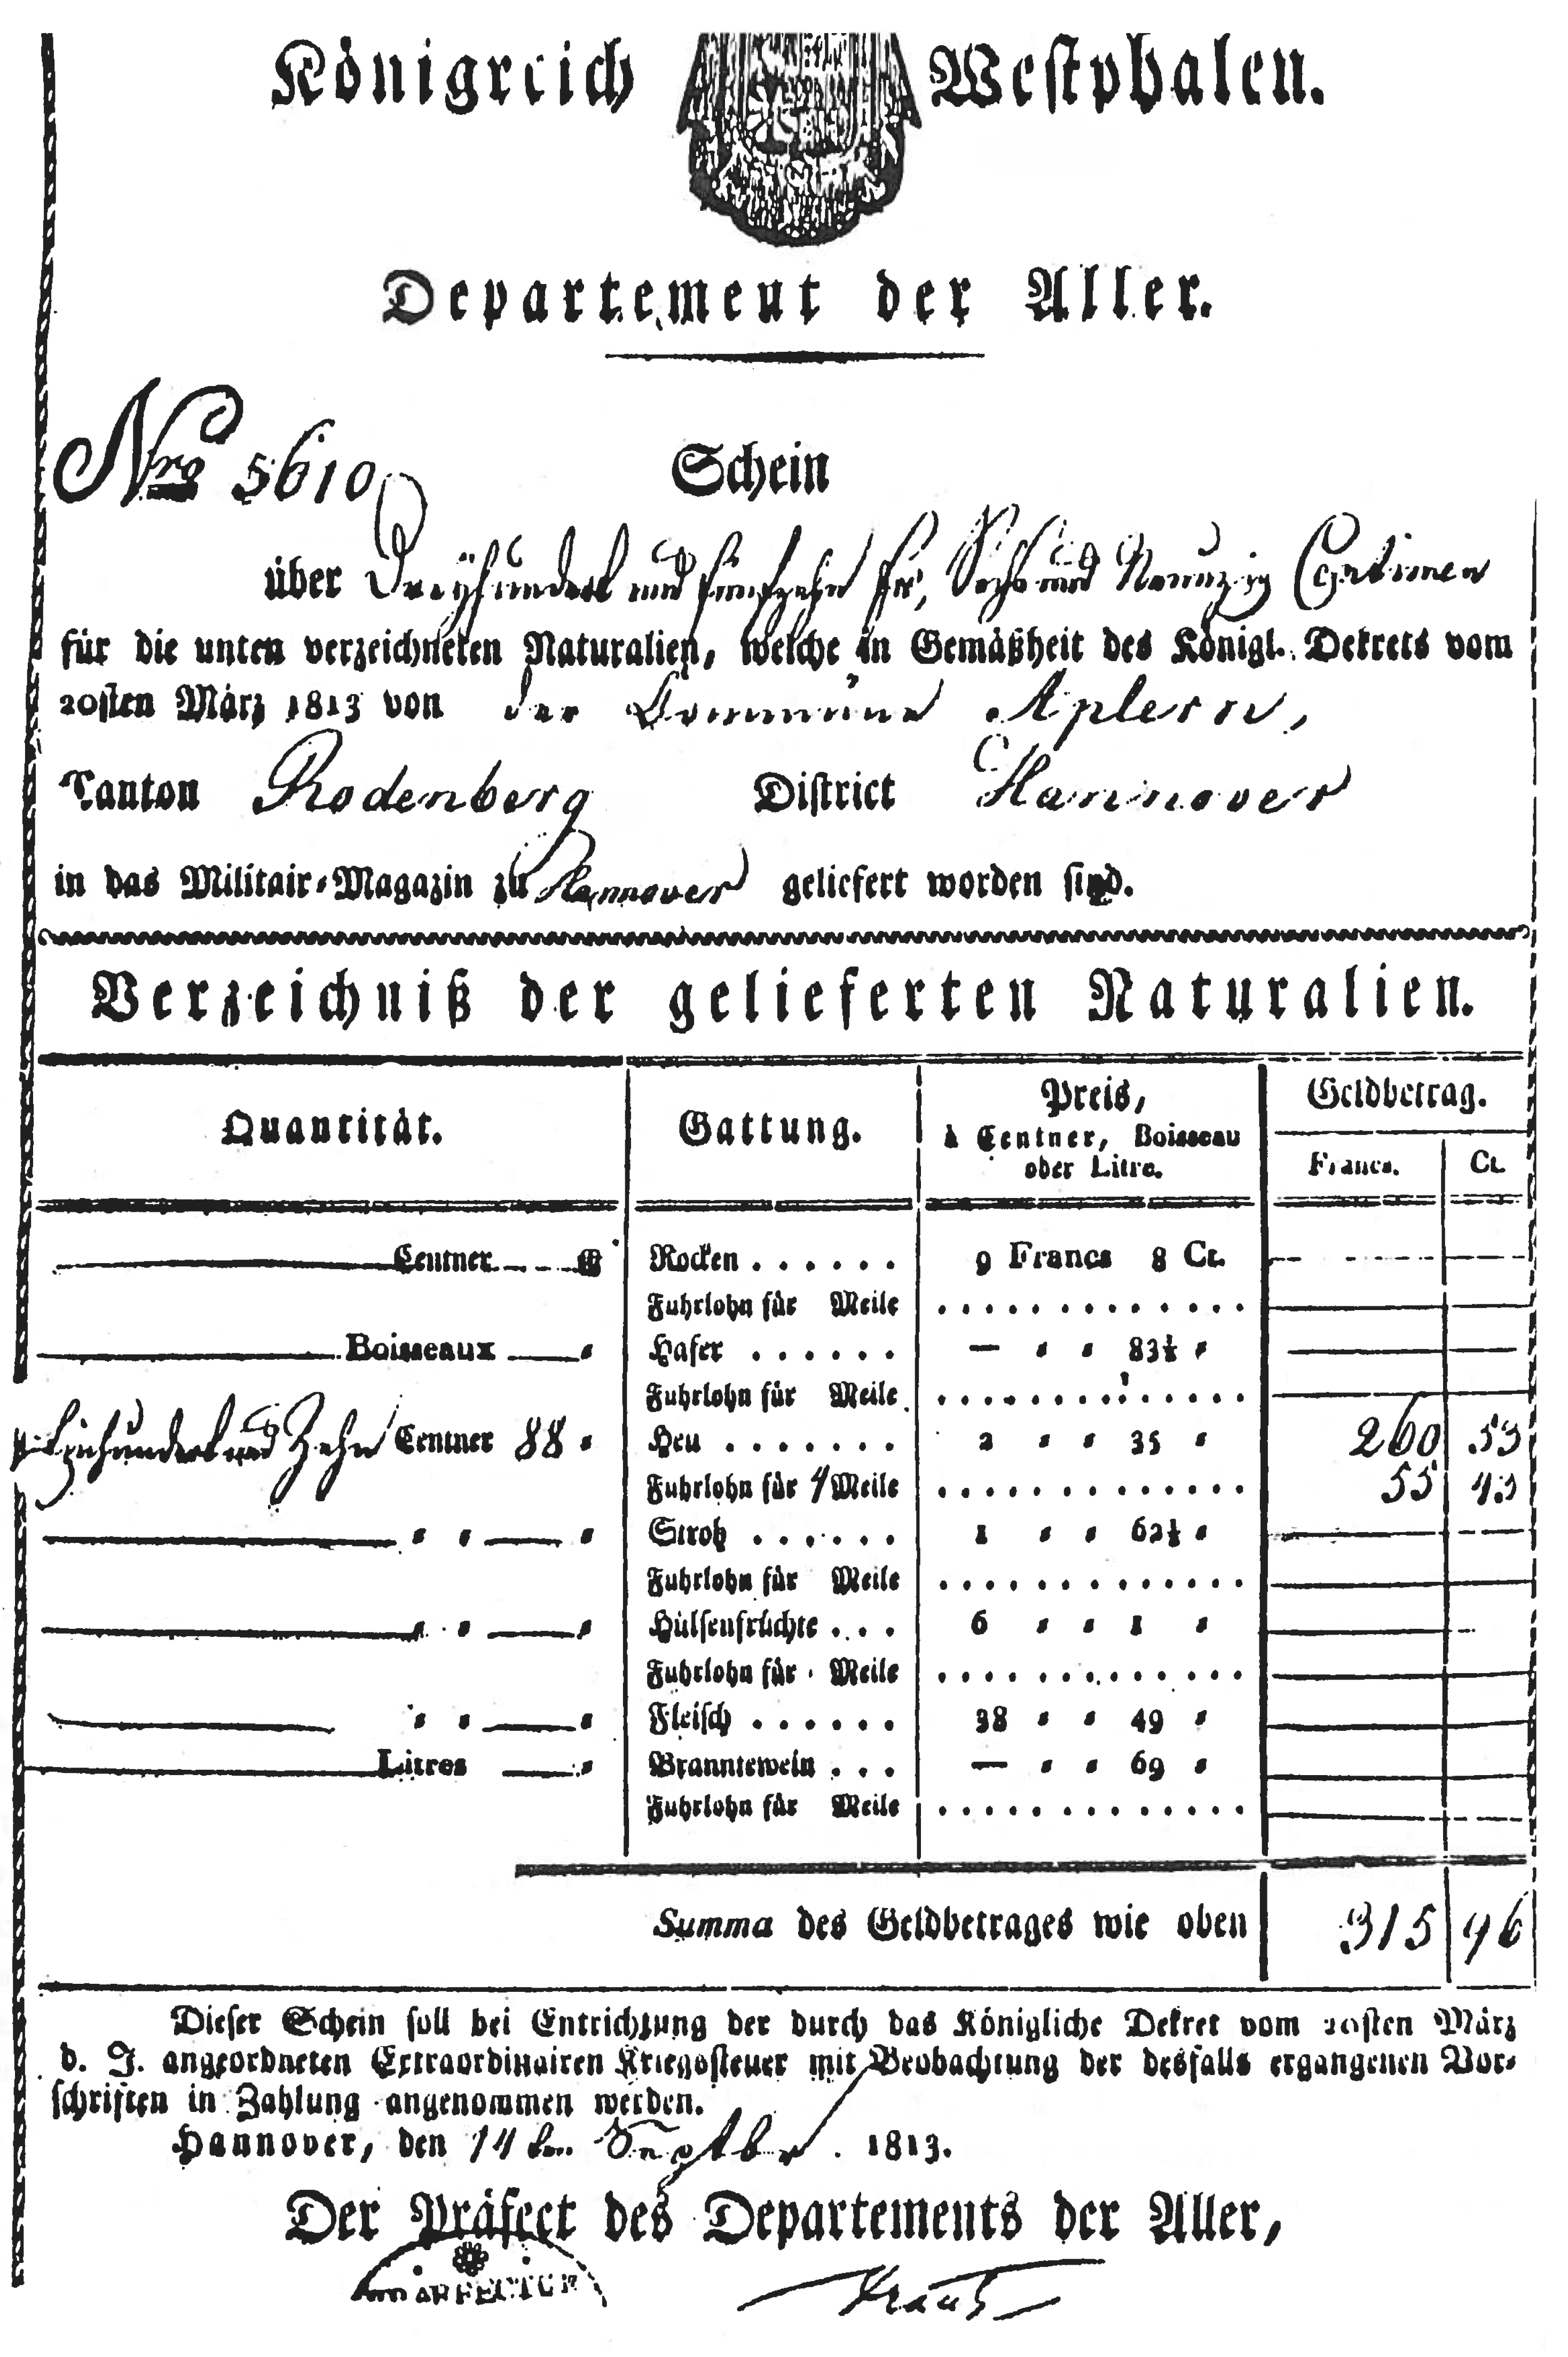 Königreich Westphalen.
Departement der Aller.
Nro 5610
Schein
über Dreyhundert und funfzehn Fr, Sechs und Neunzig Centimen
für die unten verzeichneten Naturalien, welche in Gemäßheit des Königl. Dekrets vom
20sten März 1813 von der Commune Aplern,
Canton Rodenberg District Hannover
in das Militair-Magazin zu Hannover geliefert worden sind.
Verzeichniß der gelieferten Naturalien.
Quantität. Gattung. Preis, à Centner, Boisseau oder Litre. Geldbetrag.
Francs. Ct.
Centner ℔ Rocken . . . . . . 9 Francs 8 Ct.
Fuhrlohn für Meile
Boisseaux " Hafer . . . . . . — " " 83½ "
Fuhrlohn für Meile
Einhundert und Zehn Centner 88 " Heu . . . . . . . 2 " " 35 " 260 53
Fuhrlohn für 4 Meile 55 43
" " " Stroh . . . . . . 1 " " 62½ "
Fuhrlohn für Meile
" " " Hülsenfrüchte . . . 6 " " 1 "
Fuhrlohn für Meile
" " " Fleisch . . . . . . 38 " " 49 "
Litres " Branntewein . . . — " " 69 "
Fuhrlohn für Meile
Summa des Geldbetrages wie oben 315 96
Dieser Schein soll bei Entrichtung der durch das Königliche Dekret vom 20sten März
d. J. angeordneten Extraordinairen Kriegssteuer mit Beobachtung der desfalls ergangenen Vor-
schriften in Zahlung angenommen werden.
Hannover, den 14ten Septbr. 1813.
Der Präfect des Departements der Aller,